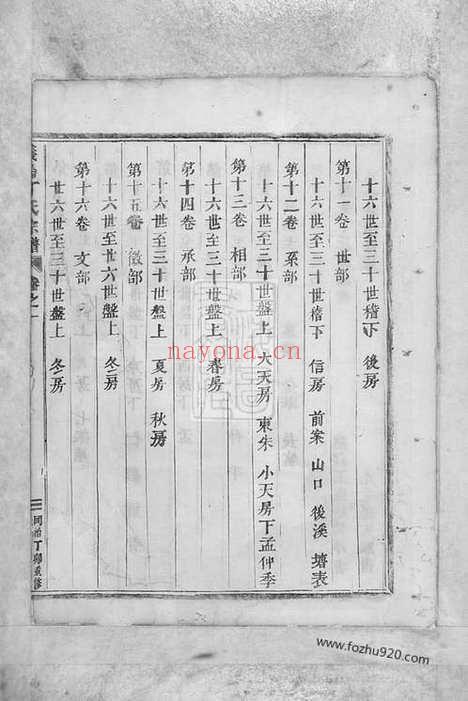 十六世至三十世稽下 後房
第十一卷 世部
十六世至三十世稽下 信房 前案 山口 後溪 塘表
第十二卷 系部
十六世至三十世盤上 大天房 東朱 小天房下孟仲季
第十三卷 相部
十六世至三十世盤上 春房
第十四卷 承部
十六世至三十世盤上 夏房 秋房
第十五卷 徵部
十六世至廿六世盤上 冬房
第十六卷 文部
廿六世至三十世盤上 冬房
丁氏宗譜 卷之一
同治丁卯重修
nayona.cn
www.fozhu920.com